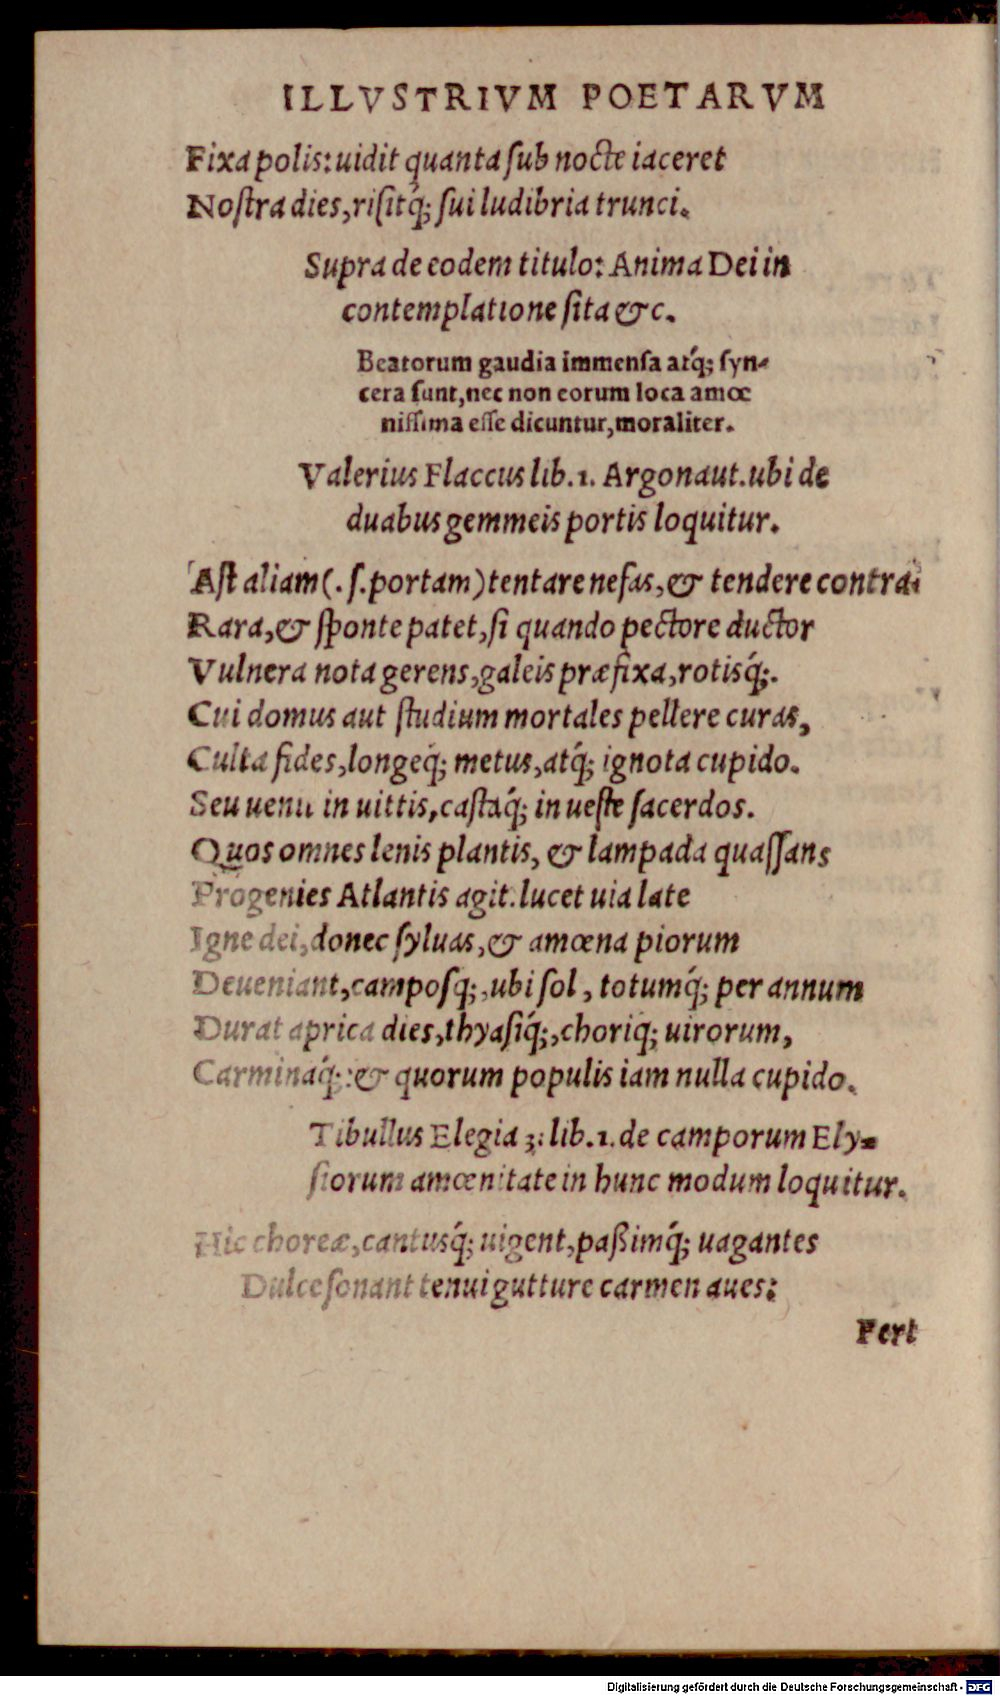 ILLVSTRIVM POETARVM
Fixa polis: uidit quanta ſub nocte iaceret
Noſtra dies, riſitq́; ſui ludibria trunci.
Supra de eodem titulo: Anima Dei in
contemplatione ſita &c.
Beatorum gaudia immenſa atq́; ſyn-
cera ſunt, nec non eorum loca amœ
niſſima eſſe dicuntur, moraliter.
Valerius Flaccus lib. 1. Argonaut. ubi de
duabus gemmeis portis loquitur.
Aſt aliam (. ſ. portam) tentare nefas, & tendere contra:
Rara, & ſponte patet, ſi quando pectore ductor
Vulnera nota gerens, galeis præfixa, rotisq́;.
Cui domus aut ſtudium mortales pellere curas,
Culta fides, longeq́; metus, atq́; ignota cupido.
Seu uenit in uittis, caſtaq́; in ueſte ſacerdos.
Quos omnes lenis plantis, & lampada quaſſans
Progenies Atlantis agit. lucet uia late
Igne dei, donec ſyluas, & amœna piorum
Deueniant, campoſq;, ubi ſol, totumq́; per annum
Durat aprica dies, thyaſiq́;, choriq; uirorum,
Carminaq́;: & quorum populis iam nulla cupido.
Tibullus Elegia 3. lib. 1. de camporum Ely-
ſiorum amœnitate in hunc modum loquitur.
Hic choreæ, cantusq́; uigent, paßimq́; uagantes
Dulce ſonant tenui gutture carmen aues:
Fert
Digitalisierung gefördert durch die Deutsche Forschungsgemeinschaft - DFG